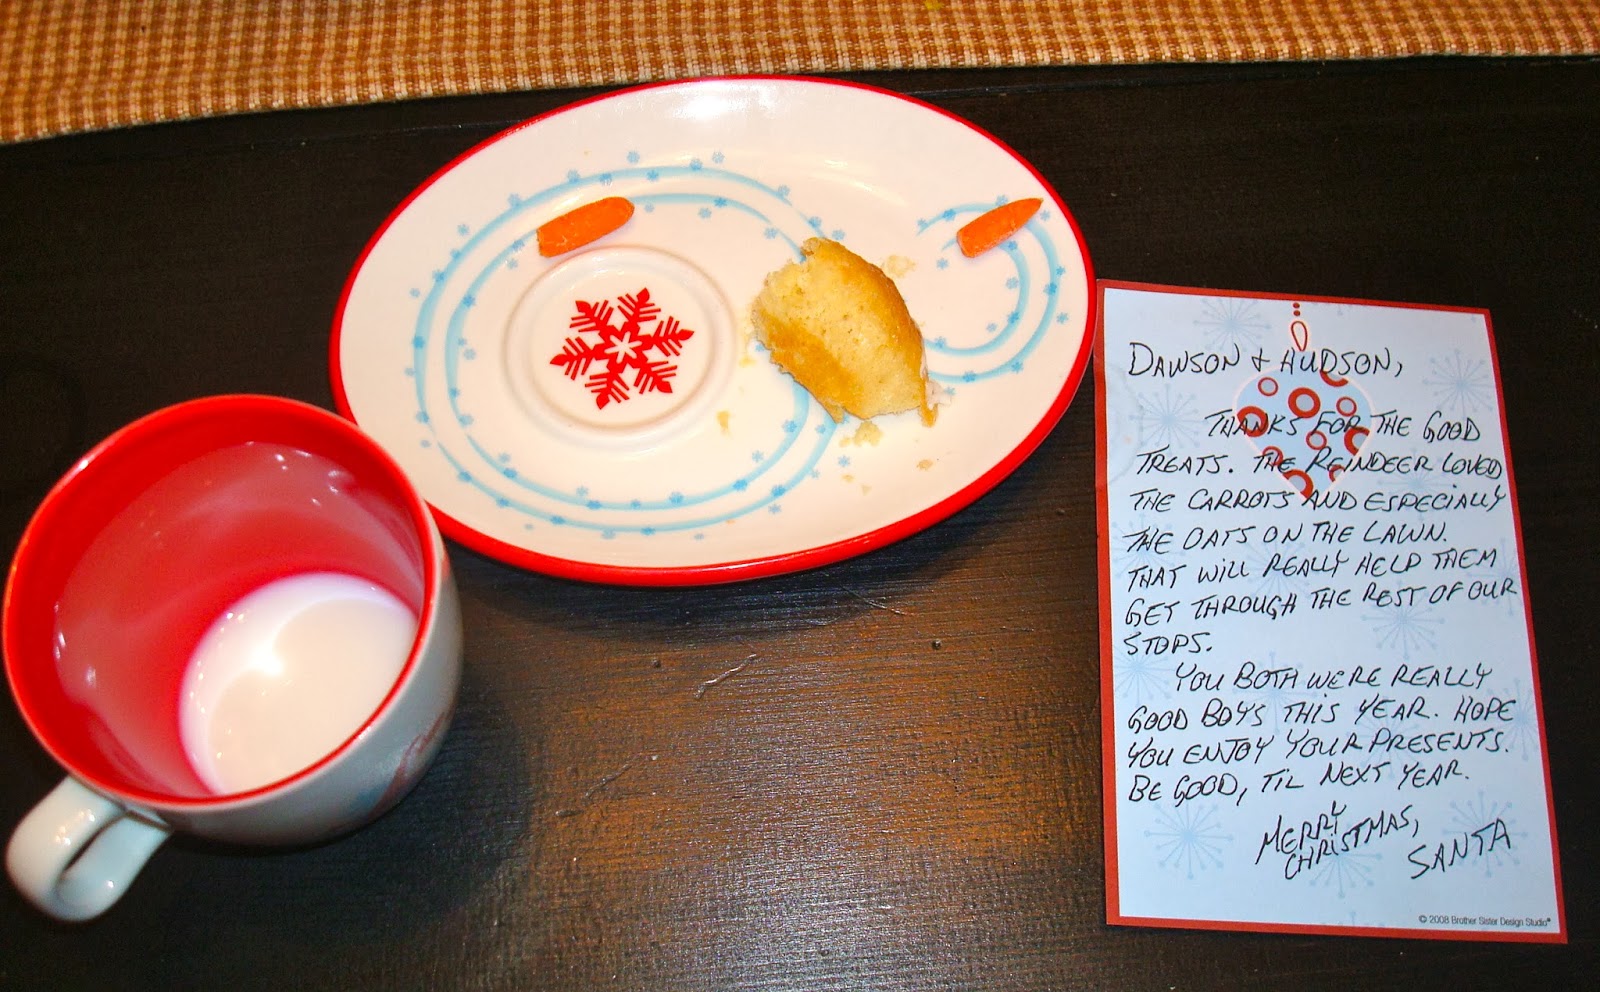 DAWSON + HUDSON,
THANKS FOR THE GOOD
TREATS. THE REINDEER LOVED
THE CARROTS AND ESPECIALLY
THE OATS ON THE LAWN.
THAT WILL REALLY HELP THEM
GET THROUGH THE REST OF OUR
STOPS.
YOU BOTH WERE REALLY
GOOD BOYS THIS YEAR. HOPE
YOU ENJOY YOUR PRESENTS.
BE GOOD, TIL NEXT YEAR.
MERRY
CHRISTMAS,
SANTA
© 2008 Brother Sister Design Studio®